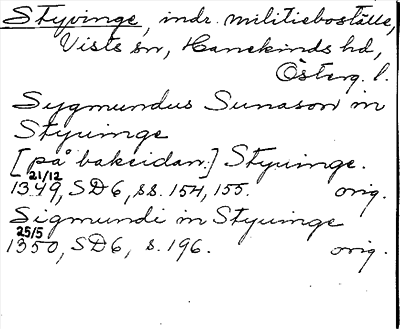 Styvinge, indr. militieboställe,
Vists sn, Hanekinds hd,
Österg. l.
Sygmundus Sunason in
Styuinge
[på baksidan:] Styuinge.
21/12
1349, SD6, ss. 154, 155. orig.
Sigmundi in Styuinge
25/5
1350, SD6, s. 196. orig.